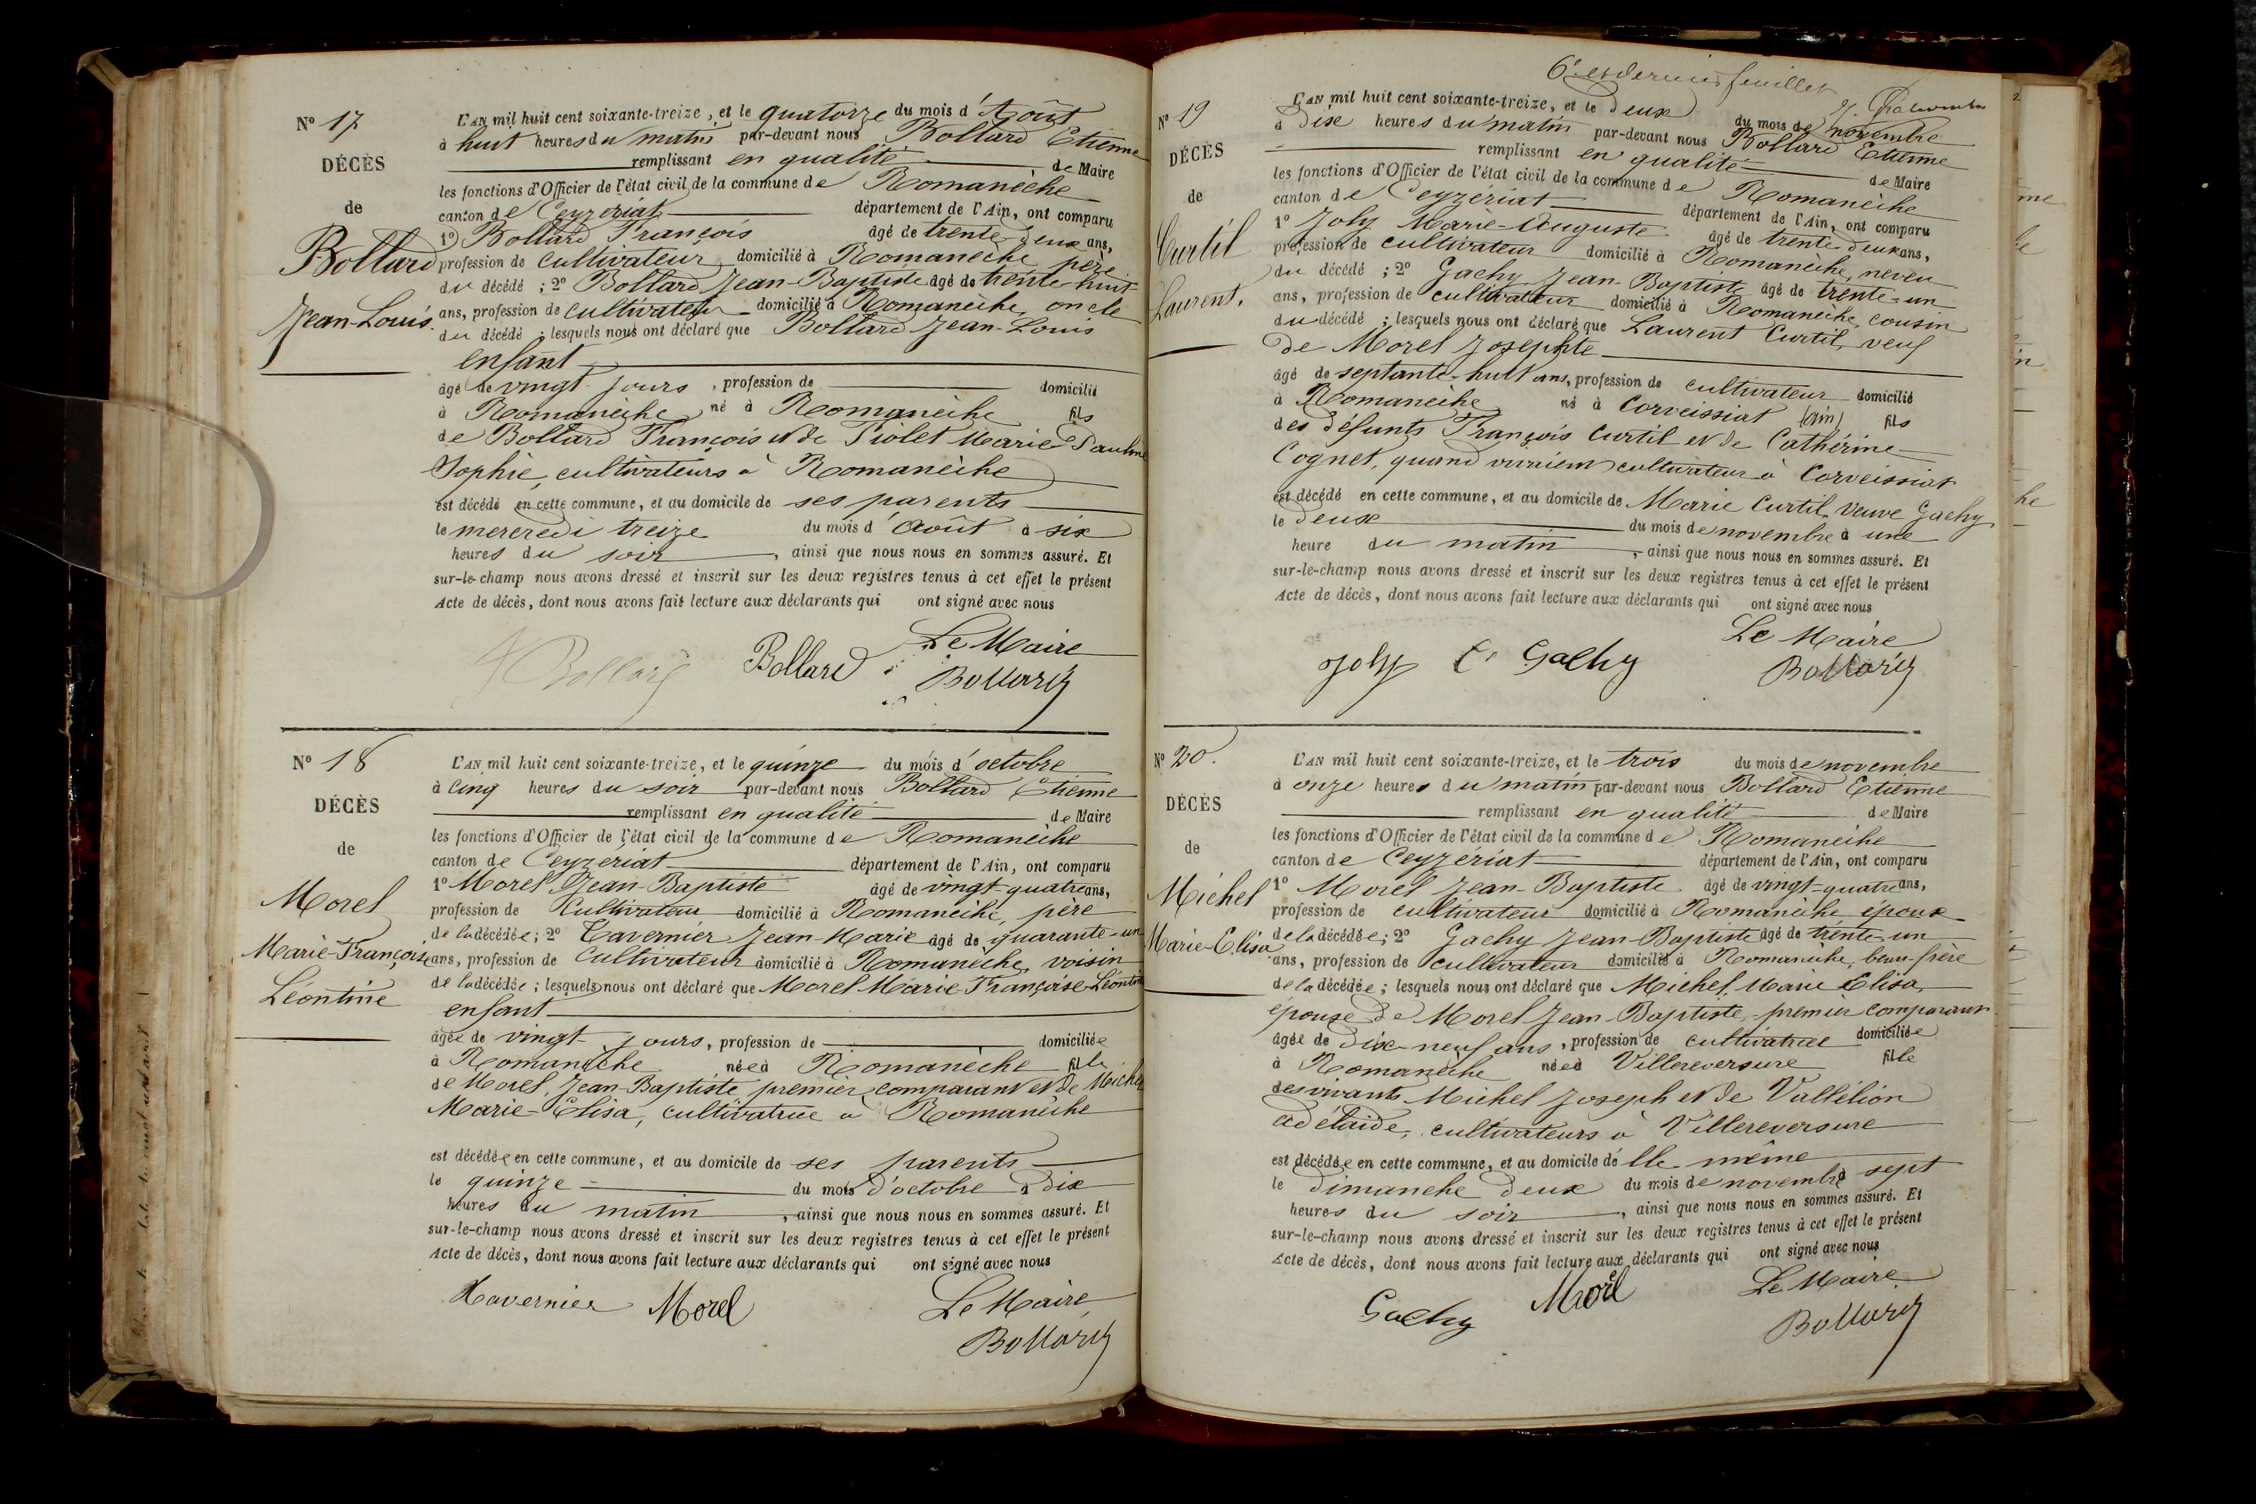 Nº 17
DÉCÈS
de
Bollard
Jean-Louis.
L'AN mil huit cent soixante-treize, et le quatorze du mois d'Août
à huit heures du matin par-devant nous Bollard Etienne
remplissant en qualité de Maire
les fonctions d'Officier de l'état civil de la commune de Romanèche
canton de Ceyzeriat département de l'Ain, ont comparu
1º Bollard François âgé de trente-deux ans,
profession de cultivateur domicilié à Romanèche père
du décédé ; 2º Bollard Jean-Baptiste âgé de trente-huit
ans, profession de cultivateur domicilié à Romanèche, oncle
du décédé ; lesquels nous ont déclaré que Bollard Jean-Louis
enfant
âgé de vingt jours, profession de domicilié
à Romanèche né à Romanèche fils
de Bollard François et de Piolet Marie Pauline
Sophie, cultivateurs à Romanèche
est décédé en cette commune, et au domicile de ses parents
le mercredi treize du mois d'août à six
heures du soir, ainsi que nous nous en sommes assuré. Et
sur-le-champ nous avons dressé et inscrit sur les deux registres tenus à cet effet le présent
Acte de décès, dont nous avons fait lecture aux déclarants qui ont signé avec nous
Le Maire
Bollard Bollard Bollard
Nº 18
DÉCÈS
de
Morel
Marie-Françoise
Léontine
L'AN mil huit cent soixante-treize, et le quinze du mois d'octobre
à cinq heures du soir par-devant nous Bollard Etienne
remplissant en qualité de Maire
les fonctions d'Officier de l'état civil de la commune de Romanèche
canton de Ceyzeriat département de l'Ain, ont comparu
1º Morel Jean-Baptiste âgé de vingt-quatre ans,
profession de Cultivateur domicilié à Romanèche, père
de la décédée ; 2º Tavernier Jean-Marie âgé de quarante-un
ans, profession de Cultivateur domicilié à Romanèche, voisin
de la décédée ; lesquels nous ont déclaré que Morel Marie-Françoise-Léontine
enfant
âgée de vingt jours, profession de domiciliée
à Romanèche née à Romanèche fille
de Morel Jean-Baptiste premier comparant et de Michel
Marie-Elisa, cultivatrice à Romanèche
est décédée en cette commune, et au domicile de ses parents
le quinze du mois d'octobre à dix
heures du matin, ainsi que nous nous en sommes assuré. Et
sur-le-champ nous avons dressé et inscrit sur les deux registres tenus à cet effet le présent
Acte de décès, dont nous avons fait lecture aux déclarants qui ont signé avec nous
Tavernier Morel Le Maire
Bollard
6e et dernier feuillet
Nº 19
DÉCÈS
de
Curtil
Laurent.
L'AN mil huit cent soixante-treize, et le deux du mois de novembre
à dix heures du matin par-devant nous Bollard Etienne
remplissant en qualité de Maire
les fonctions d'Officier de l'état civil de la commune de Romanèche
canton de Ceyzériat département de l'Ain, ont comparu
1º Joly Marie-Auguste âgé de trente-deux ans,
profession de cultivateur domicilié à Romanèche, neveu
du décédé ; 2º Gachy Jean-Baptiste âgé de trente-un
ans, profession de cultivateur domicilié à Romanèche, cousin
du décédé ; lesquels nous ont déclaré que Laurent Curtil, veuf
de Morel Josephte
âgé de septante-huit ans, profession de cultivateur domicilié
à Romanèche né à Corveissiat (ain) fils
des défunts François Curtil et de Cathérine
Cognet, quand vivaient cultivateur à Corveissiat
est décédé en cette commune, et au domicile de Marie Curtil veuve Gachy
le deux du mois de novembre à une
heure du matin, ainsi que nous nous en sommes assuré. Et
sur-le-champ nous avons dressé et inscrit sur les deux registres tenus à cet effet le présent
Acte de décès, dont nous avons fait lecture aux déclarants qui ont signé avec nous
Le Maire
Joly Gachy Bollard
Nº 20.
DÉCÈS
de
Michel
Marie-Elisa
L'AN mil huit cent soixante-treize, et le trois du mois de novembre
à onze heures du matin par-devant nous Bollard Etienne
remplissant en qualité de Maire
les fonctions d'Officier de l'état civil de la commune de Romanèche
canton de Ceyzériat département de l'Ain, ont comparu
1º Morel Jean-Baptiste âgé de vingt-quatre ans,
profession de cultivateur domicilié à Romanèche époux
de la décédée ; 2º Gachy Jean-Baptiste âgé de trente-un
ans, profession de cultivateur domicilié à Romanèche, beau-frère
de la décédée ; lesquels nous ont déclaré que Michel, Marie Elisa,
épouse de Morel Jean-Baptiste, premier comparant
âgée de dix-neuf ans, profession de cultivatrice domiciliée
à Romanèche née à Villereversure fille
des vivants Michel Joseph et de Vallélion
adélaide, cultivateurs à Villereversure
est décédée en cette commune, et au domicile d'elle même
le dimanche deux du mois de novembre à sept
heures du soir, ainsi que nous nous en sommes assuré. Et
sur-le-champ nous avons dressé et inscrit sur les deux registres tenus à cet effet le présent
Acte de décès, dont nous avons fait lecture aux déclarants qui ont signé avec nous
Gachy Morel Le Maire
Bollard